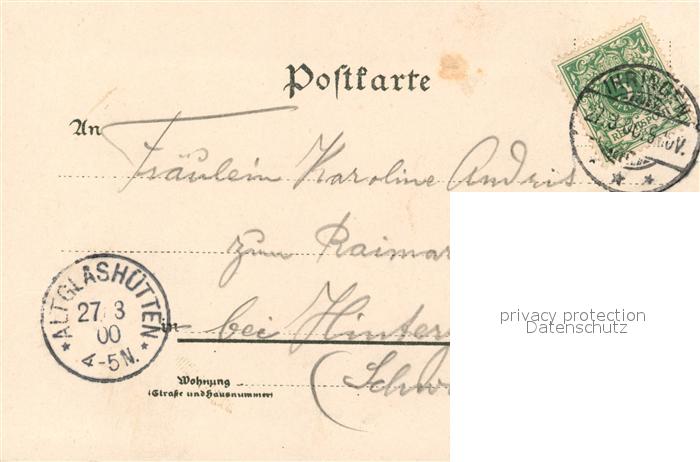 Postkarte
An Fräulein Karoline Andris
zum
bei Hinter
in
Wohnung
(Straße und Hausnummer)
ALTGLASHÜTTEN
27. 3
00
4-5N.
IHRINGEN
REICHSPOST
privacy protection
Datenschutz